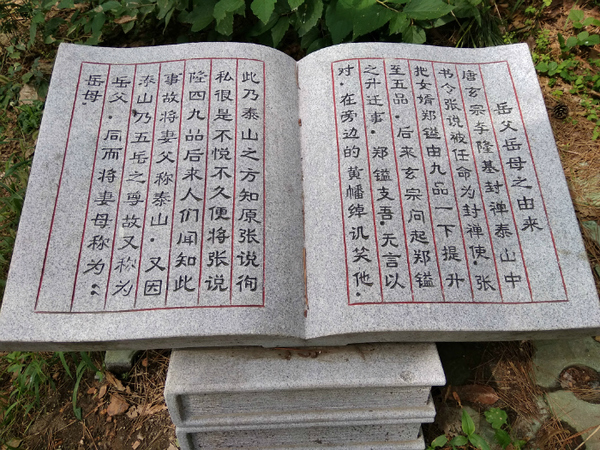 岳父岳母之由来
唐玄宗李隆基封禅泰山中
书令张说被任命为封禅使·张
把女婿郑镒由九品一下提升
至五品·后来玄宗问起郑镒
之升迁事·郑镒支吾·无言以
对·在旁边的黄幡绰讥笑他·
此乃泰山之方知原张说徇
私很是不悦不久便将张说
降回九品后来人们闻知此
事故将妻父称泰山·又因
泰山乃五岳之尊故又称为
岳父·同而将妻母称为：
岳母·